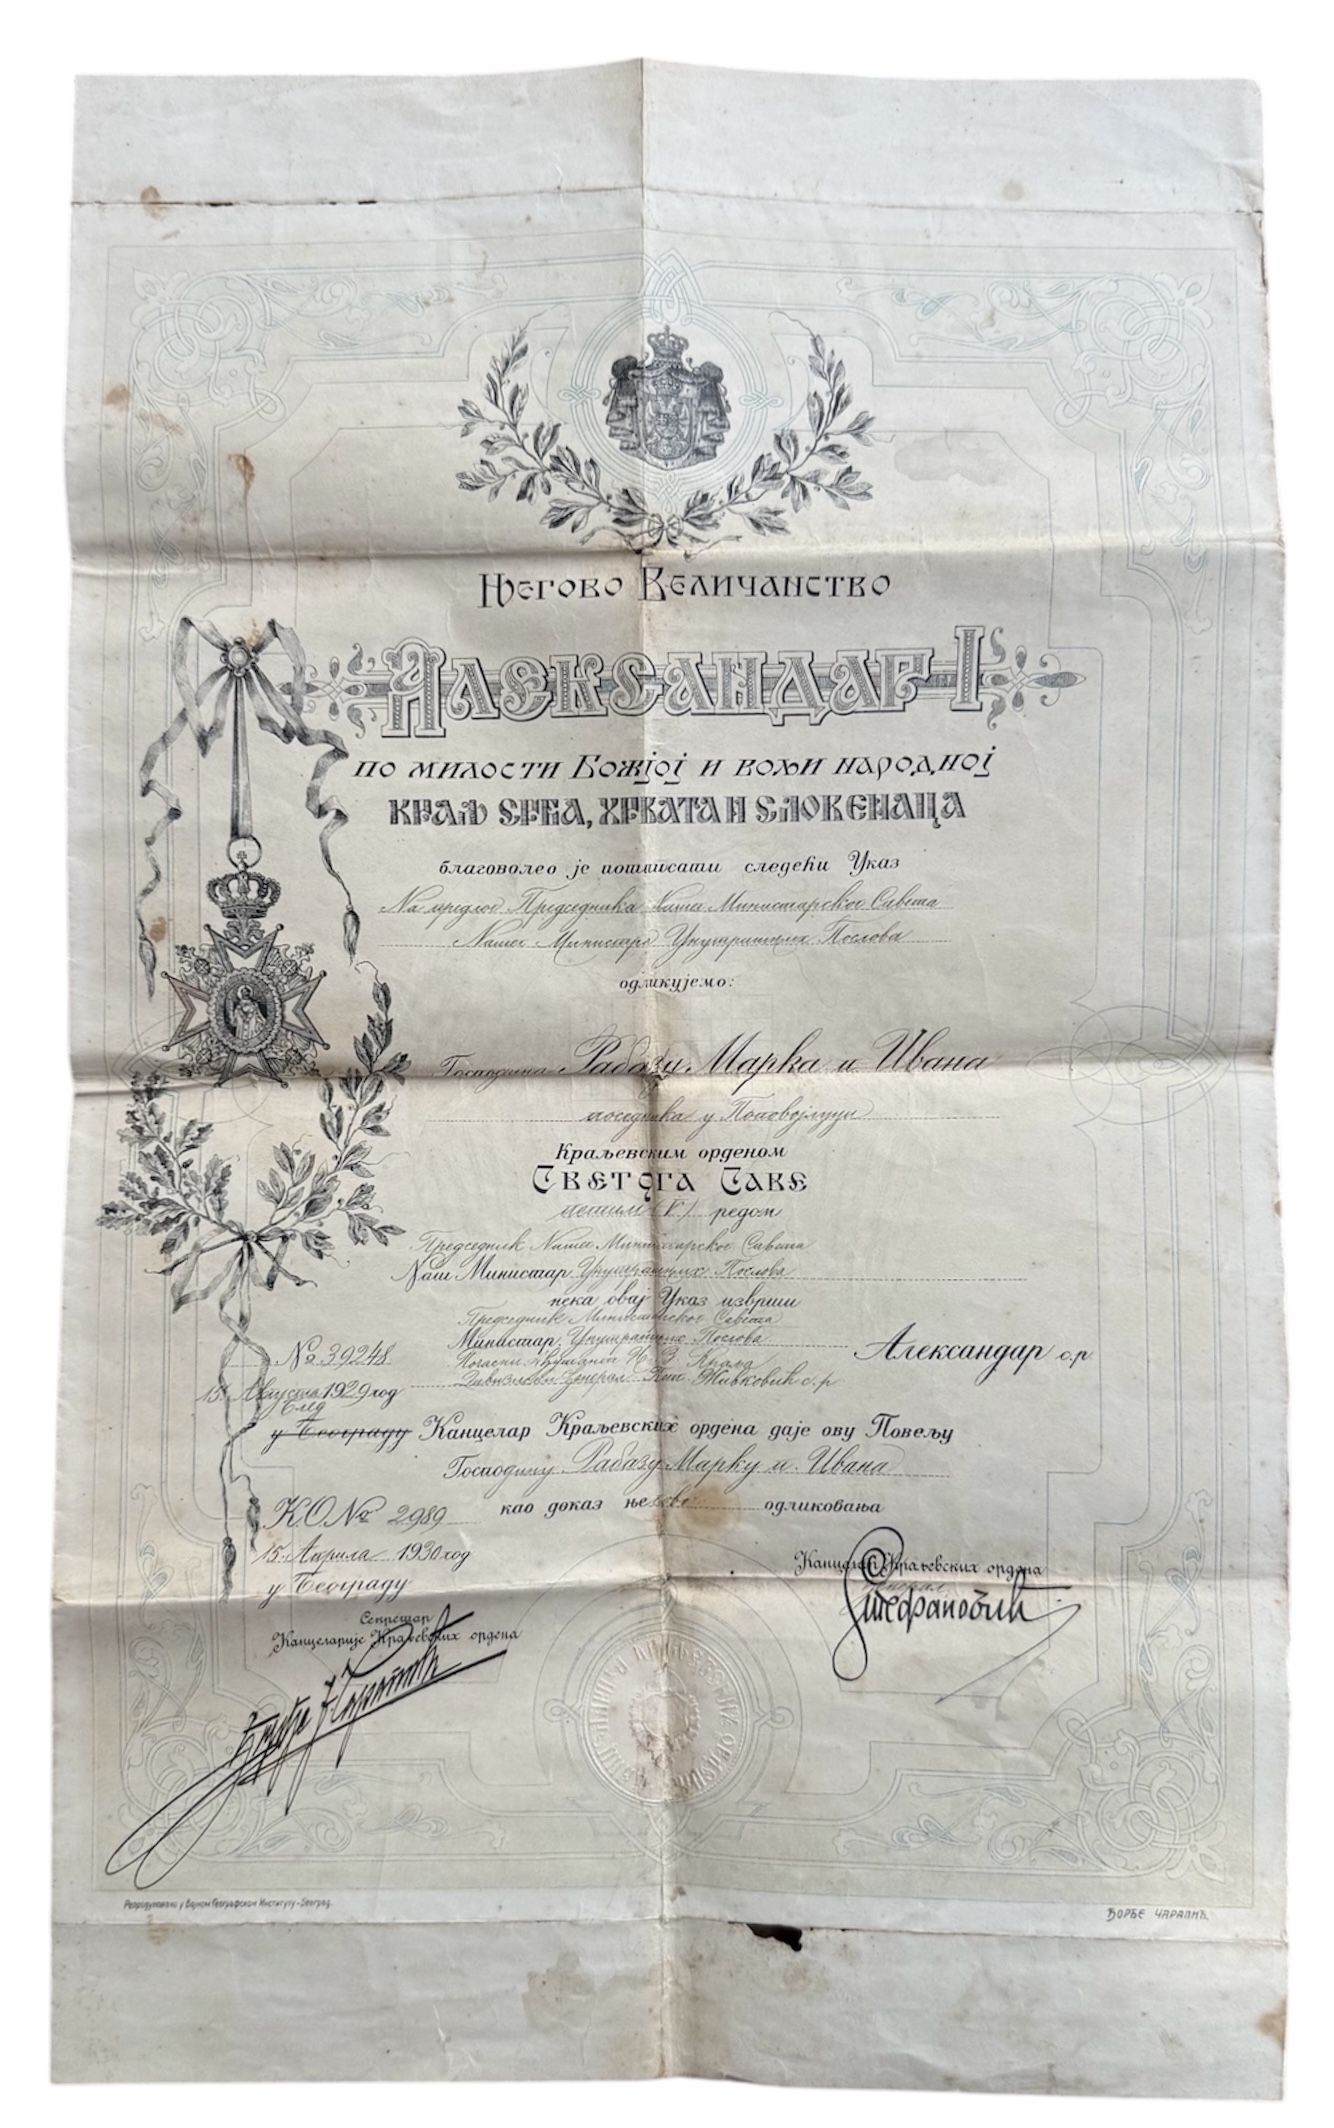 Његово Величанство
Александар I
по милости Божјој и вољи народној
Краљ Срба, Хрвата и Словенаца
благоволео је потписати следећи Указ
На предлог Председника Нашег Министарског Савета
Нашег Министара Унутрашњих Послова
одликујемо:
Господина Рабазу Марка и Ивана
поседника у
Краљевским орденом
Светога Саве
петим (V) редом
Председник Нашег Министарског Савета
Наш Министар Унутрашњих Послова
нека овај Указ изврши
Председник Министарског Савета
Министар Унутрашњих Послова
Александар с.р
№ 39248
Почасни Ађутант Њ. В. Краља
Дивизиски Ђенерал Пет. Живковић с. р
15. Августа 1929 год
Блед
у Београду
Канцелар Краљевских ордена даје ову Повељу
Господину Рабазу Марку и. Ивана
као доказ његовог одликовања
К.О № 2989
15. Априла 1930 год
у Београду
Канцелар Краљевских ордена
Ђенерал
Стефановић
Секретар
Канцеларије Краљевских ордена
Репродуковано у Војном Географском Институту - Београд.
Ђорђе Чарапић.